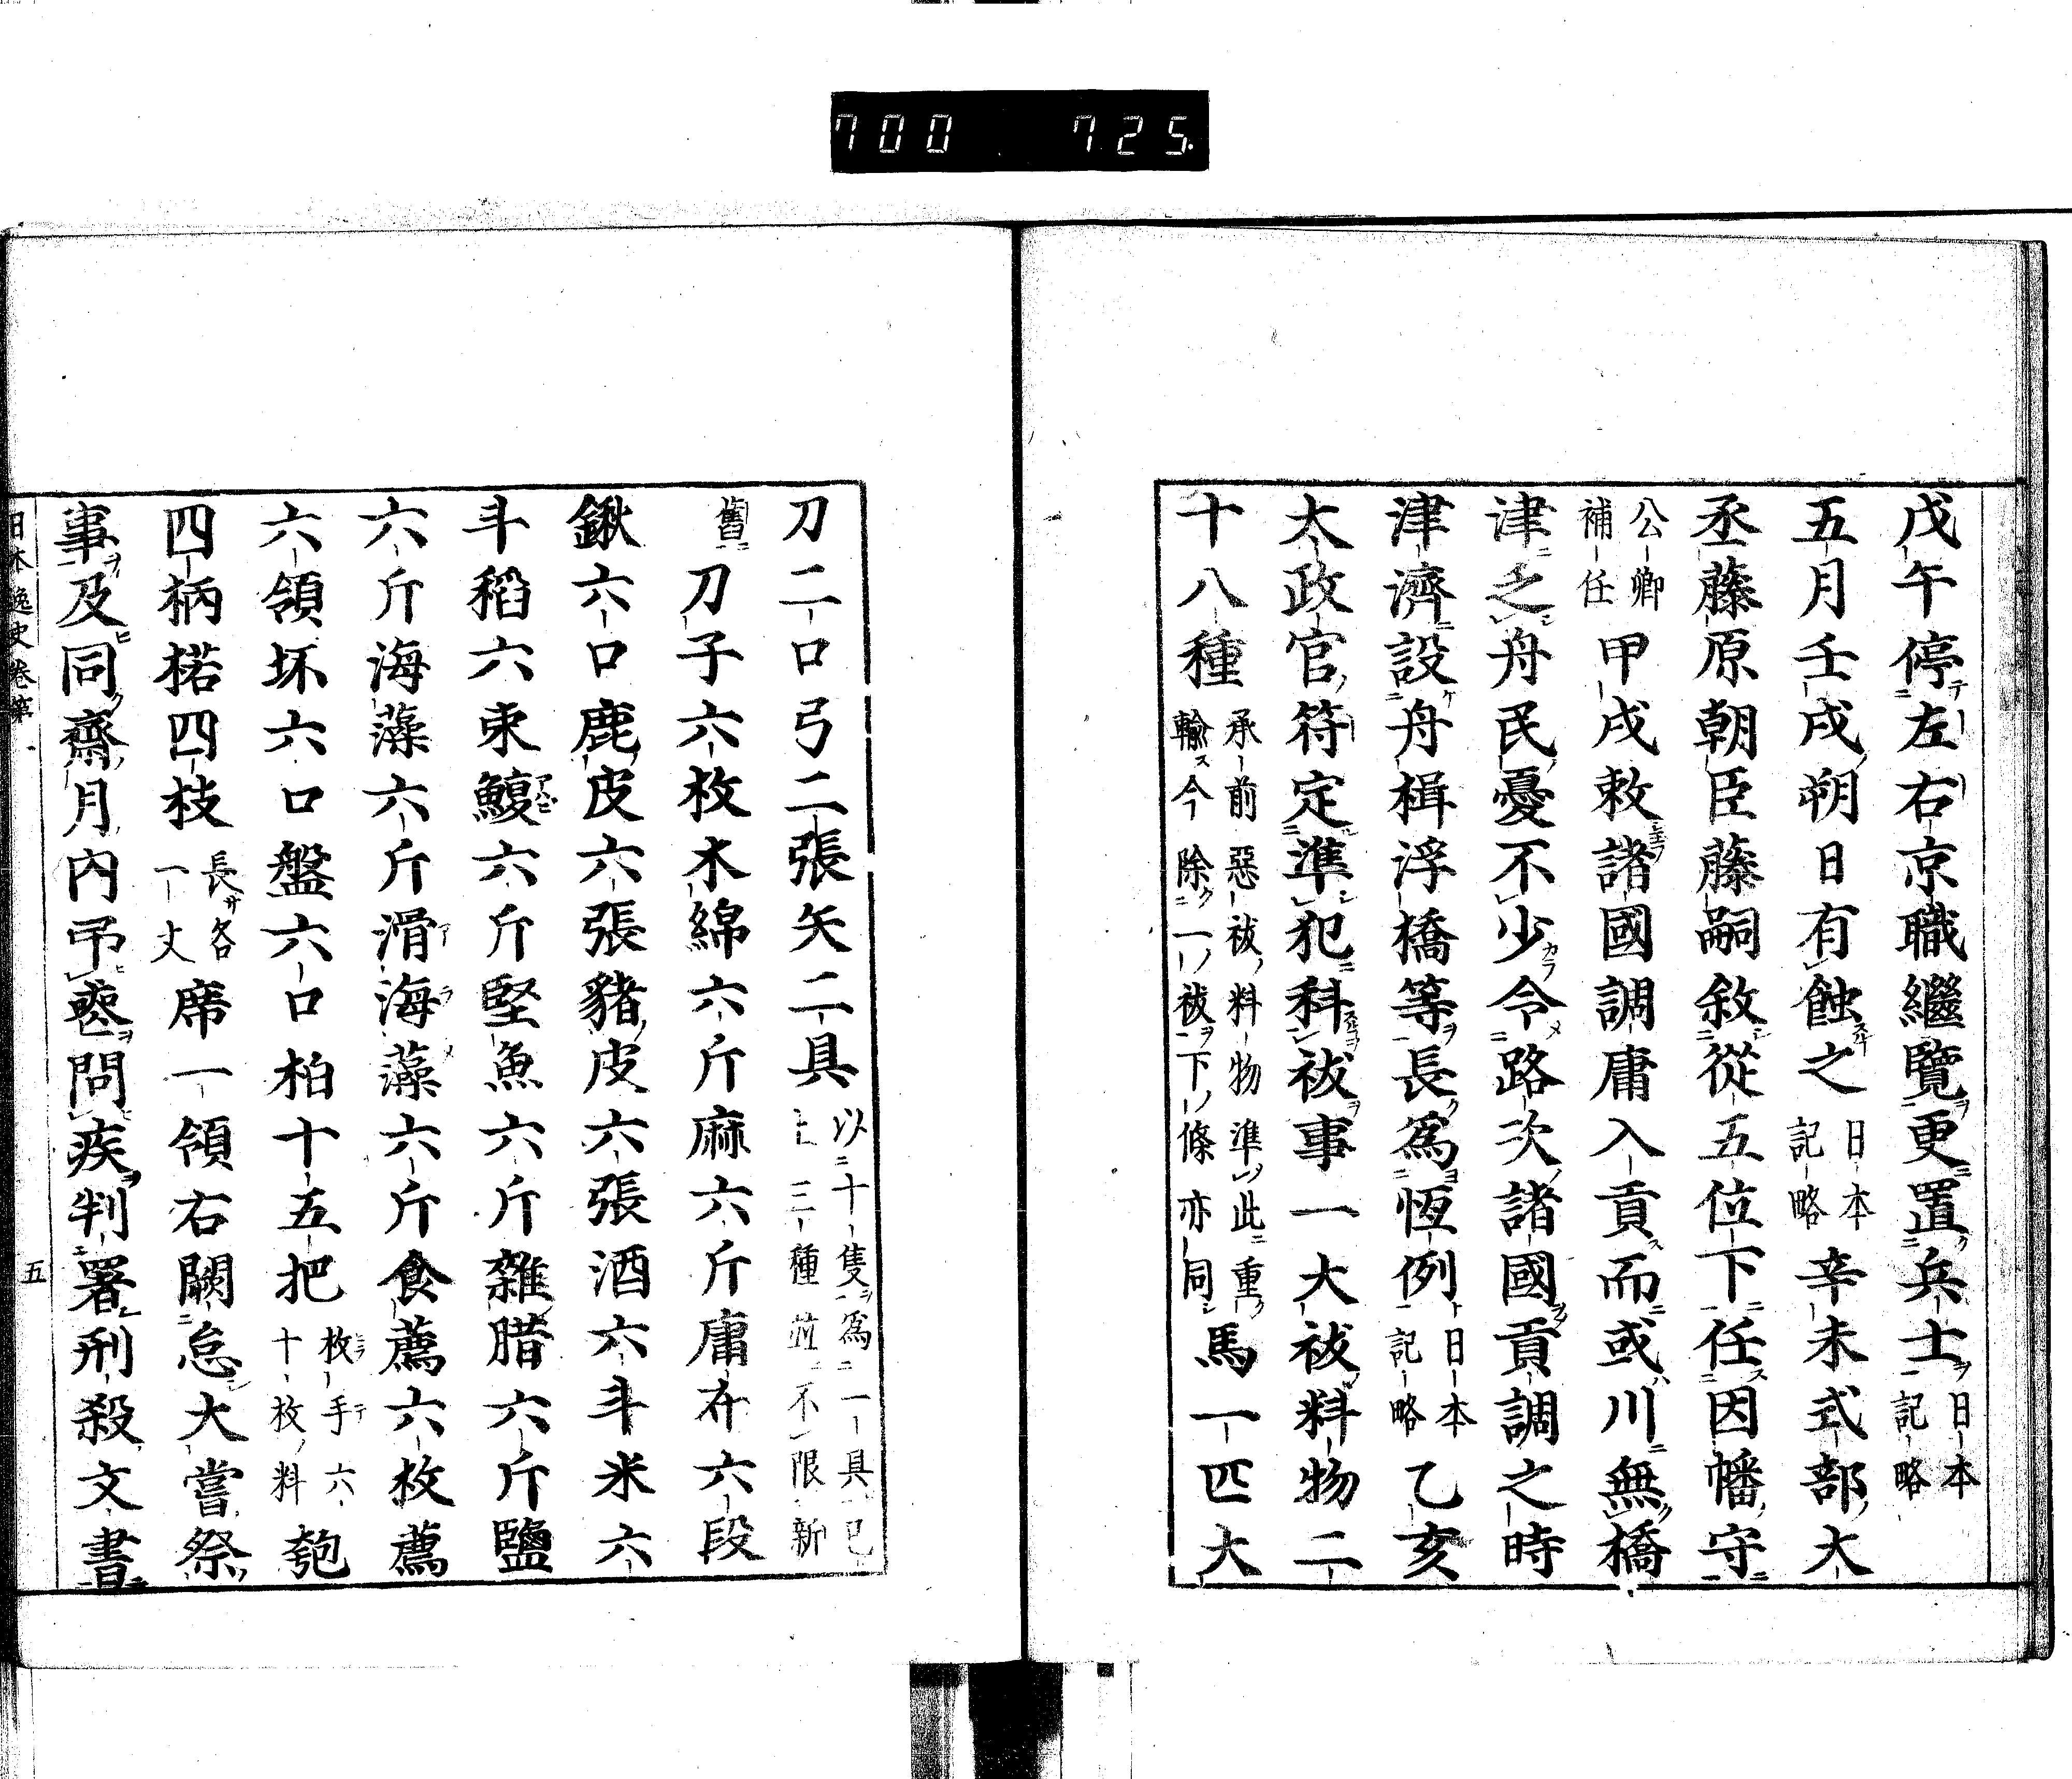 700 725.
戊午停左右京職繼覽更置兵士日本記略
五月壬戌朔日有蝕之日本記略辛未式部大
丞藤原朝臣藤嗣敘從五位下任因幡守
公卿補任甲戌敕諸國調庸入貢而或川無橋
津之舟民憂不少令路次諸國貢調之時
津濟設舟楫浮橋等長爲恆例日本記略乙亥
太政官符定準犯科祓事一大祓料物二
十八種承前惡祓料物準此重輸今除一祓下條亦同馬一匹大
刀二口弓二張矢二具以十隻爲一具已上三種並不限新
舊刀子六枚木綿六斤麻六斤庸布六段
鍬六口鹿皮六張豬皮六張酒六斗米六
斗稻六束鰒六斤堅魚六斤雜腊六斤鹽
六斤海藻六斤滑海藻六斤食薦六枚薦
六領坏六口盤六口柏十五把枚手六十枚料匏
四柄楉四枝長各一丈席一領右闕怠大嘗祭
事及同齋月內弔喪問疾判署刑殺文書
日本逸史卷第 五